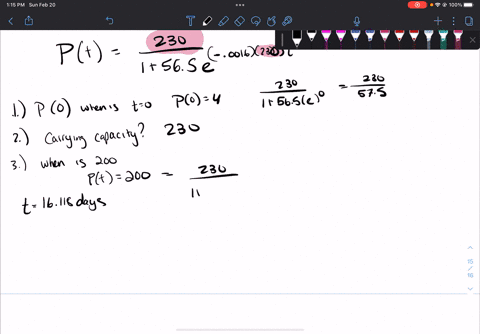 1:15 PM Sun Feb 20
100%
P(t) = 230 / 1+56.5e^(-.0016)(230)t
1.) P(0) when is t=0 P(0)=4 230 / 1+56.5(e)^0 = 230 / 57.5
2.) Carrying capacity? 230
3.) when is 200
P(t)=200 = 230 / 11
t= 16.118 days
15 / 16